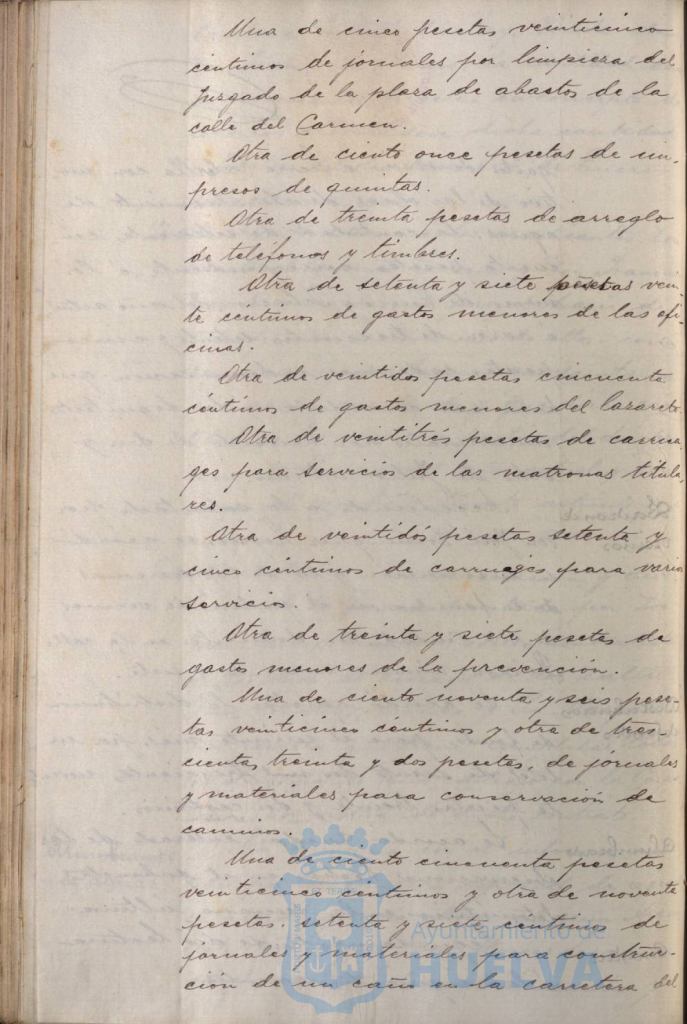 Una de cinco pesetas veinticinco
céntimos de jornales por limpieza del
Juzgado de la plaza de abastos de la
calle del Carmen.
Otra de ciento once pesetas de im-
presos de quintas.
Otra de treinta pesetas de arreglo
de teléfonos y timbres.
Otra de setenta y siete pesetas vein-
te céntimos de gastos menores de las ofi-
cinas.
Otra de veintidos pesetas cincuenta
céntimos de gastos menores del lazareto.
Otra de veintitrés pesetas de carrua-
ges para servicios de las matronas titula-
res.
Otra de veintidós pesetas setenta y
cinco céntimos de carruages para vario
servicio.
Otra de treinta y siete pesetas de
gastos menores de la prevención.
Una de ciento noventa y seis pese-
tas veinticinco céntimos y otra de tres-
cientas treinta y dos pesetas, de jornales
y materiales para conservación de
caminos.
Una de ciento cincuenta pesetas
veinticinco céntimos y otra de noventa
pesetas setenta y siete céntimos de
jornales y materiales para construc-
ción de un caño en la carretera del
Ayuntamiento de
HUELVA